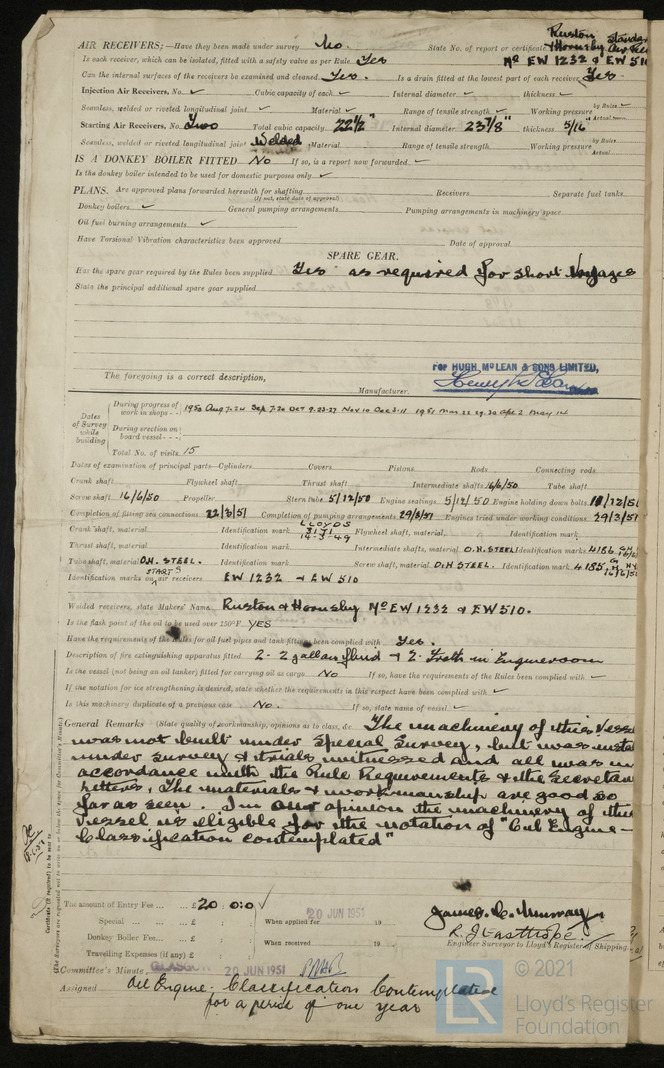 AIR RECEIVERS;—Have they been made under survey No. State No. of report or certificate Ruston & Hornsby
Is each receiver, which can be isolated, fitted with a safety valve as per Rule Yes No EW 1232 & EW 510
Can the internal surfaces of the receivers be examined and cleaned Yes. Is a drain fitted at the lowest part of each receiver Yes
Injection Air Receivers, No. ✓ Cubic capacity of each ✓ Internal diameter ✓ thickness ✓
Seamless, welded or riveted longitudinal joint ✓ Material ✓ Range of tensile strength ✓ Working pressure by Rules ✓ Actual
Starting Air Receivers, No. Two Total cubic capacity 22½" Internal diameter 23 7/8" thickness 5/16"
Seamless, welded or riveted longitudinal joint Welded Material Range of tensile strength Working pressure by Rules Actual
IS A DONKEY BOILER FITTED No If so, is a report now forwarded ✓
Is the donkey boiler intended to be used for domestic purposes only ✓
PLANS. Are approved plans forwarded herewith for shafting Receivers Separate fuel tanks
(If not, state date of approval)
Donkey boilers ✓ General pumping arrangements Pumping arrangements in machinery space
Oil fuel burning arrangements ✓
Have Torsional Vibration characteristics been approved Date of approval
SPARE GEAR.
Has the spare gear required by the Rules been supplied Yes as required for short voyages
State the principal additional spare gear supplied
FOR HUGH McLEAN & SONS LIMITED,
The foregoing is a correct description,
Manufacturer.
Dates of Survey while building
During progress of work in shops - - 1950 Aug 7.24 Sep 7.20 Oct 9.23.27 Nov 10 Dec 5.11 1951 Mar 22 29.30 Apr 2 May 14
During erection on board vessel - - -
Total No. of visits 15
Dates of examination of principal parts—Cylinders Covers Pistons Rods Connecting rods
Crank shaft Flywheel shaft Thrust shaft Intermediate shafts 16/6/50 Tube shaft
Screw shaft 16/6/50 Propeller Stern tube 5/12/50 Engine seatings 5/12/50 Engine holding down bolts
Completion of fitting sea connections 22/3/51 Completion of pumping arrangements 29/3/51 Engines tried under working conditions 29/3/51
Crank shaft, material Identification mark LLOYDS 3171 14-3-49 Flywheel shaft, material Identification mark
Thrust shaft, material Identification mark Intermediate shafts, material O.H. STEEL Identification marks 4186
Tube shaft, material O.H. STEEL. Identification mark Screw shaft, material O.H STEEL. Identification mark 4185
Identification marks on START'S air receivers EW 1232 & EW 510
Welded receivers, state Makers' Name Ruston & Hornsby No EW 1232 & EW 510.
Is the flash point of the oil to be used over 150°F. YES
Have the requirements of the Rules for oil fuel pipes and tank fittings been complied with Yes.
Description of fire extinguishing apparatus fitted 2 - 2 gallon fluid & 2 Froth in Engineroom
Is the vessel (not being an oil tanker) fitted for carrying oil as cargo No If so, have the requirements of the Rules been complied with ✓
If the notation for ice strengthening is desired, state whether the requirements in this respect have been complied with ✓
Is this machinery duplicate of a previous case No. If so, state name of vessel ✓
General Remarks (State quality of workmanship, opinions as to class, &c. The machinery of this
was not built under Special Survey, but was
under survey & trials witnessed and all was in
accordance with the Rule Requirements & the
Letters, The materials & workmanship are good so
far as seen. In our opinion the machinery of this
vessel is eligible for the notation of "Oil Engine—
Classification contemplated"
Certificate (if required) to be sent to
(The Surveyors are requested not to write on or below the space for Committee's Minute.)
The amount of Entry Fee ... ... £ 20 : 0:0 ✓
20 JUN 1951
Special ... ... ... £ : : When applied for 19
Donkey Boiler Fee ... ... £ : : When received 19
Travelling Expenses (if any) £ : :
James. C. Murray
R. J. Easthope.
Engineer Surveyor to Lloyd's Register of Shipping.
Committee's Minute GLASGOW 20 JUN 1951
Assigned Oil Engine; Classification Contemplated
for a period of one year
© 2021
Lloyd's Register
Foundation
LR